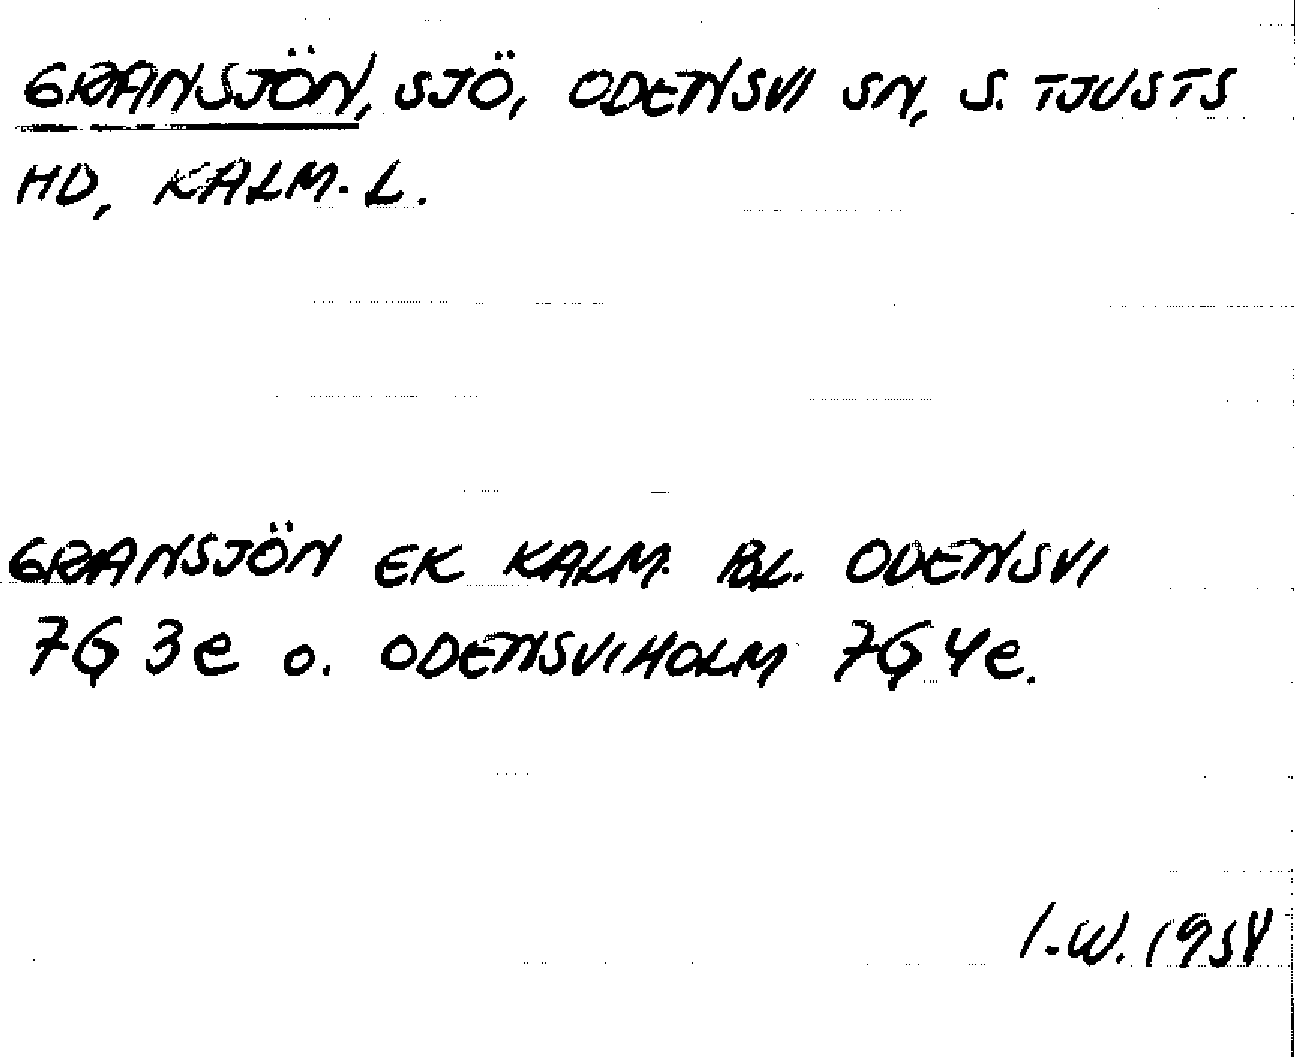 GRANSJÖN, SJÖ, ODENSVI SN, S. TJUSTS
HD, KALM. L.
GRANSJÖN EK KALM. BL. ODENSVI
7G 3e o. ODENSVIHOLM 7G 4e.
I.W. 1954